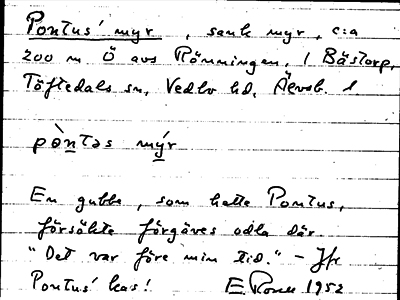 Pontus' myr, sank myr, c:a
200 m Ö avs Rönningen, 1 Bästorp,
Töftedals sn, Vedbo hd, Älvsb. l.
pòntəs mýr
En gubbe, som hette Pontus,
försökte förgäves odla där.
"Det var före min tid." – Jfr
Pontus' kas! E. 1952